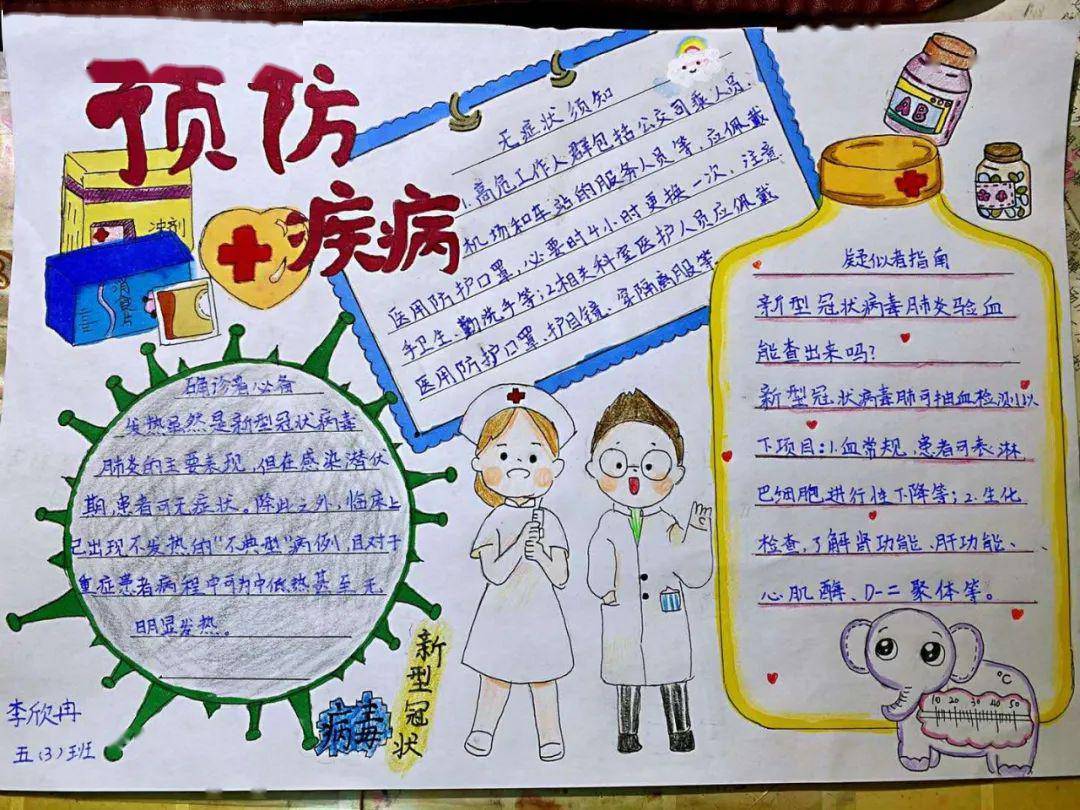 预防
疾病
冲剂
无症状须知
1.高危工作人群包括公交司乘人员、
机场和车站的服务人员等,应佩戴
医用防护口罩,必要时4小时更换一次,注意
手卫生、勤洗手等;2.相关科室医护人员应佩戴
医用防护口罩、护目镜、穿隔离服等
AB
疑似者指南
新型冠状病毒肺炎验血
能查出来吗?
新型冠状病毒肺可抽血检测以
下项目:1.血常规,患者可表淋
巴细胞进行性下降等;2.生化
检查,了解肾功能、肝功能、
心肌酶、D-二聚体等。
确诊者必备
发热虽然是新型冠状病毒
肺炎的主要表现,但在感染潜伏
期,患者可无症状。除此之外,临床上
已出现不发热的“不典型”病例,且对于
重症患者病程中可为中低热甚至无
明显发热。
新型冠状
病毒
李欣冉
五(3)班
℃
10 20 30 40 50